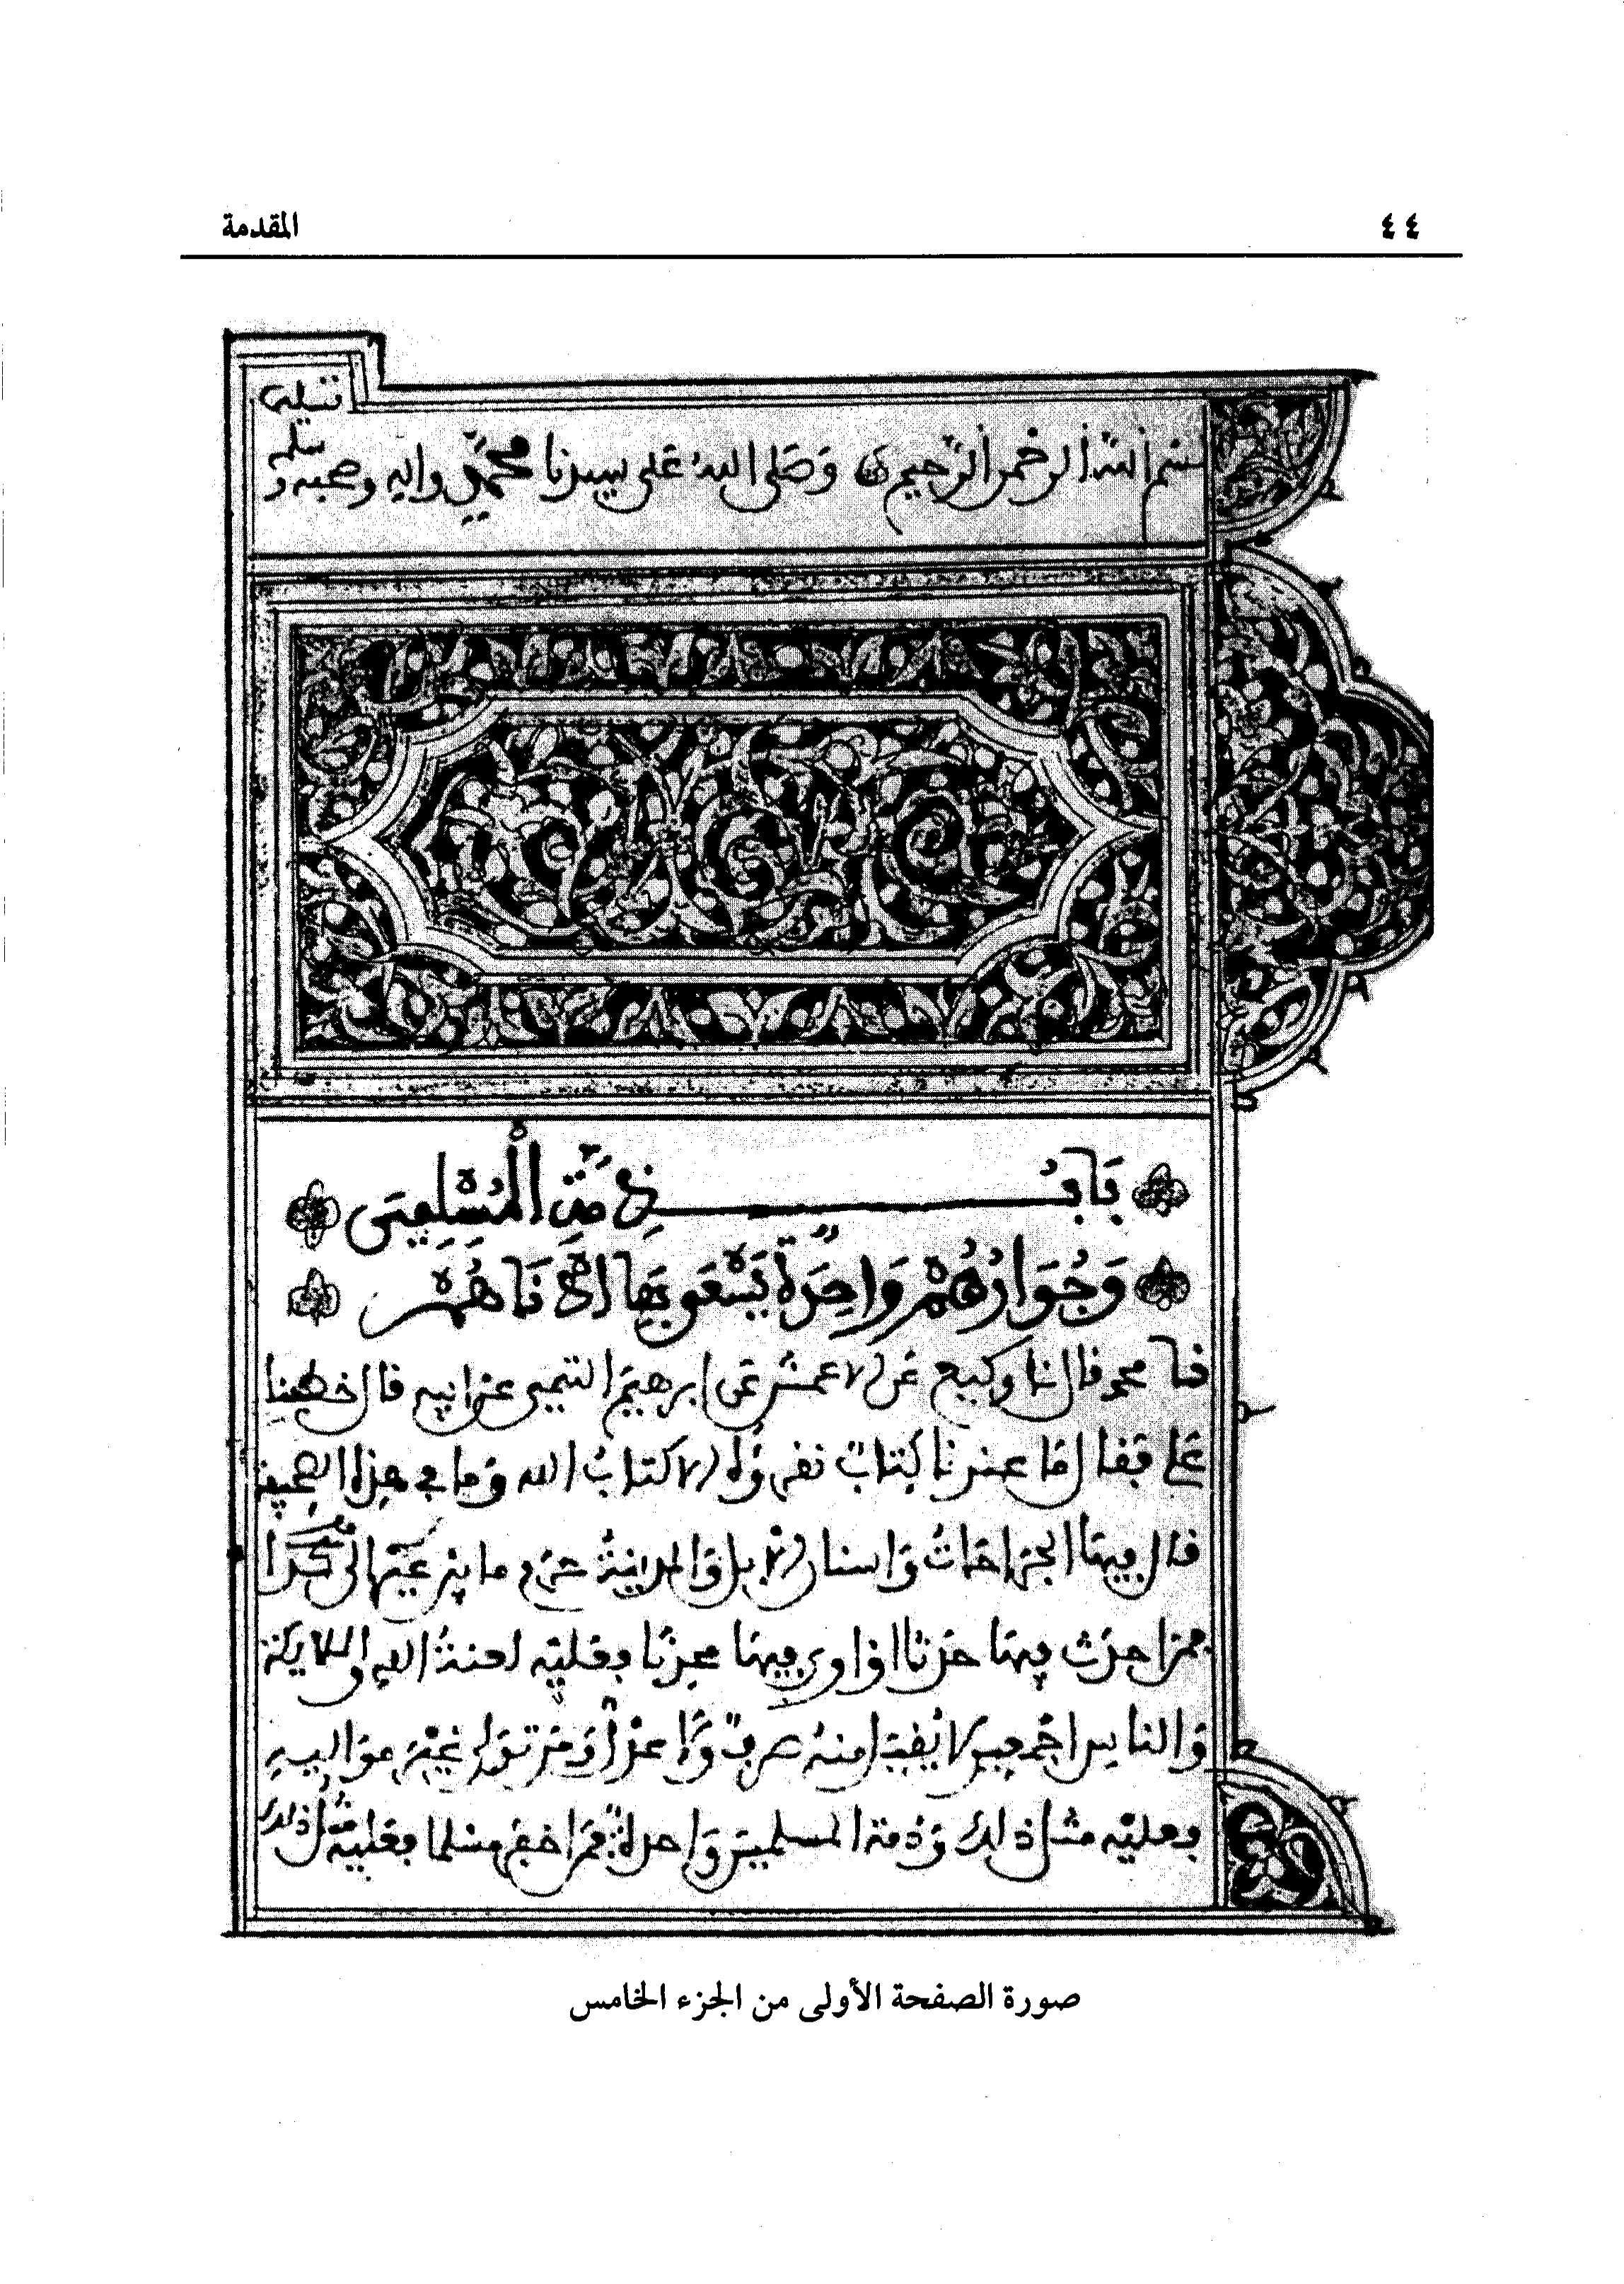 ٤٤
المقدمة
بسم الله الرحمن الرحيم وصلى الله على سيدنا محمد واله وصحبه وسلم
تسليما
بَابُ ذِمَّةِ الْمُسْلِمِينَ
وَجُوَارُهُمْ وَاحِدَةٌ يَسْعَى بِهَا أَدْنَاهُمْ
محمد قال انا وكيع عن الاعمش عن ابرهيم التيمي عن ابيه قال خطبنا
علي فقال ما عندنا كتاب نقرؤه الا كتاب الله وما في هذه الصحيفة
قال فيها الجراحات واسنان الابل والمدينة حرم ما بين عير الى كذا
فمن احدث فيها حدثا او اوى فيها محدثا فعليه لعنة الله والملايكة
والناس اجمعين لا يقبل منه صرف ولا عدل ومن تولى غير مواليه
فعليه مثل ذلك وذمة المسلمين واحدة فمن اخفر مسلما فعليه مثل ذلك
صورة الصفحة الأولى من الجزء الخامس